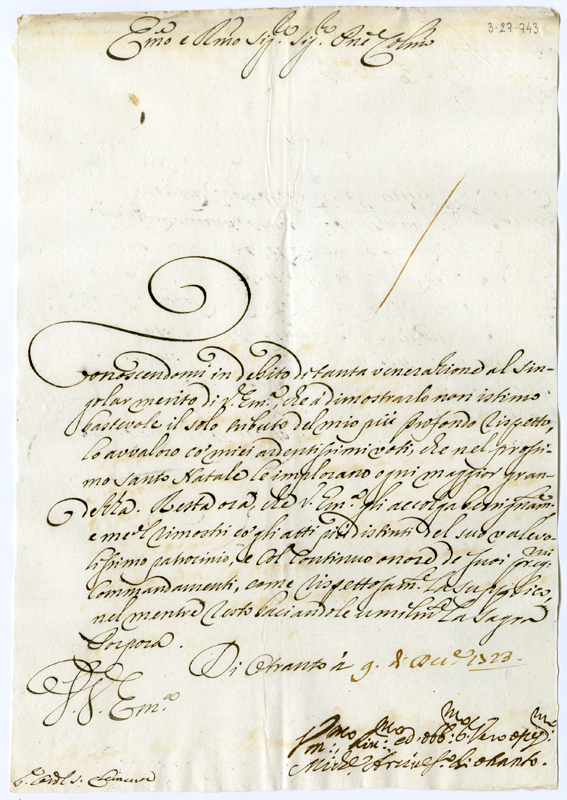 3-27-743
Em̃o e Rm̃o Sig.re Sig.re Pne Colm̃o
Conoscendomi in debito di tanta venerazione al sin-
golar merito di V. Em.za, che a dimostrarlo non istimo
bastevole il solo tributo del mio più profondo rispetto,
lo avvaloro co' miei ardentissimi voti, che nel prossi-
mo Santo Natale le implorano ogni maggior gran-
dezza. Resta ora, che V. Em.za gli accolga benignam.e
e me'l rimostri co' gli atti più distinti del suo valevo-
lissimo patrocinio, e col continuo onor de suoi preg.mi
Commandamenti, come rispettosam.e La supplico,
nel mentre resto baciandole umilm.e La Sagra
Porpora.
Di Otranto à 9. di Dec.e 1723.
V. Em.za
Um.mo Div.mo ed Obb.mo Servo
Mich.e Arciv.o di Otranto.